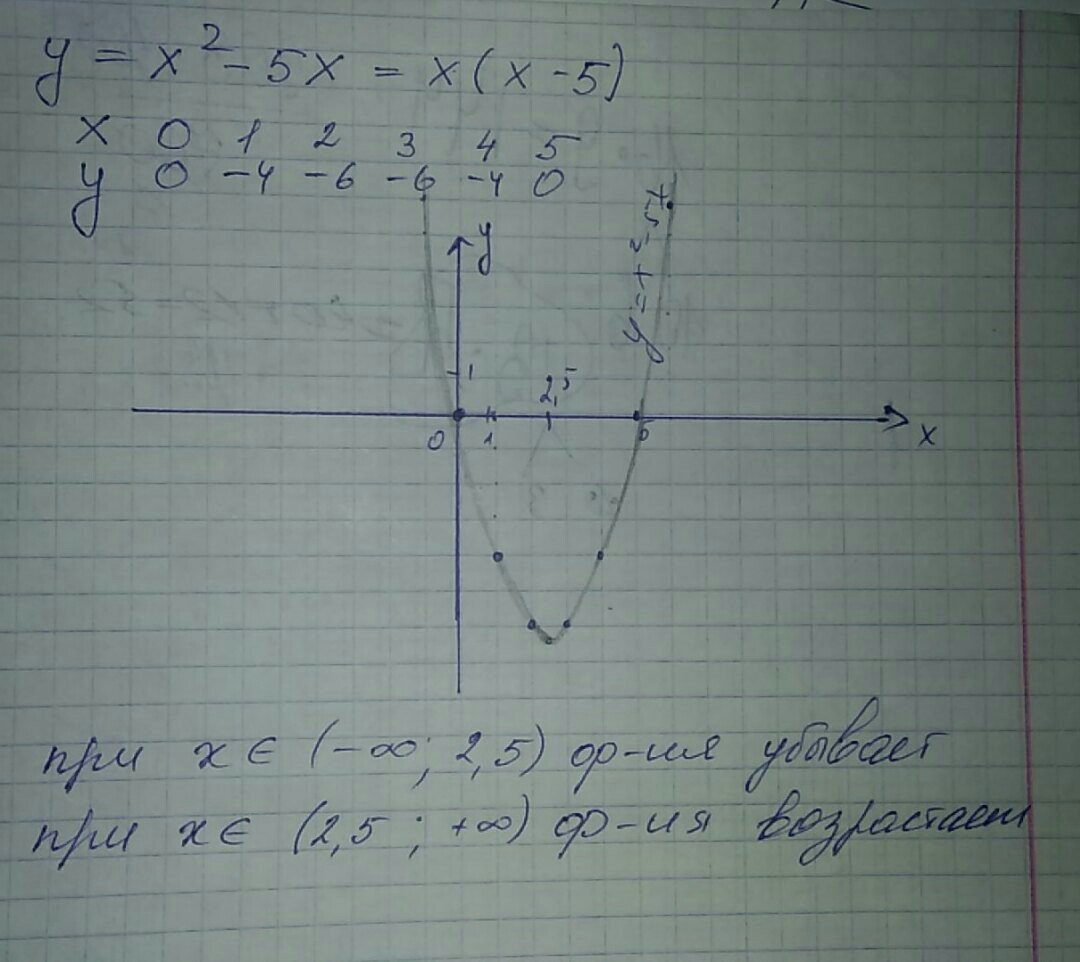 y = x² - 5x = x(x - 5)
x 0 1 2 3 4 5
y 0 -4 -6 -6 -4 0
y
y = x² - 5x
1
2,5
0 1
x
при x ∈ (-∞; 2,5) ф-ия убывает
при x ∈ (2,5; +∞) ф-ия возрастает